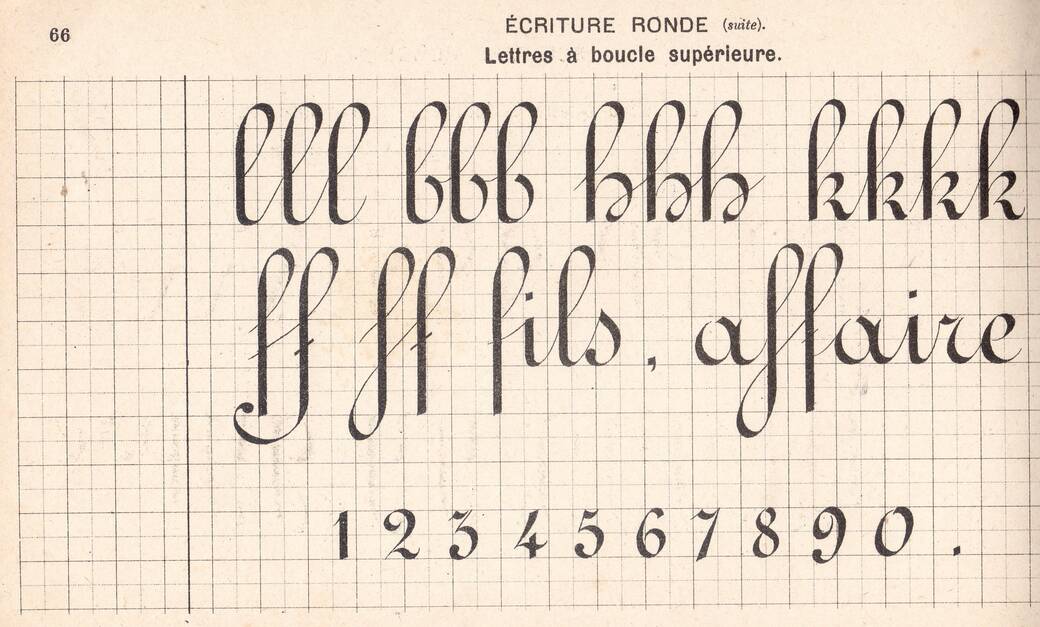 66
ÉCRITURE RONDE (suite).
Lettres à boucle supérieure.
lll bbb hhh kkkk
ff ff fils, affaire
1 2 3 4 5 6 7 8 9 0 .